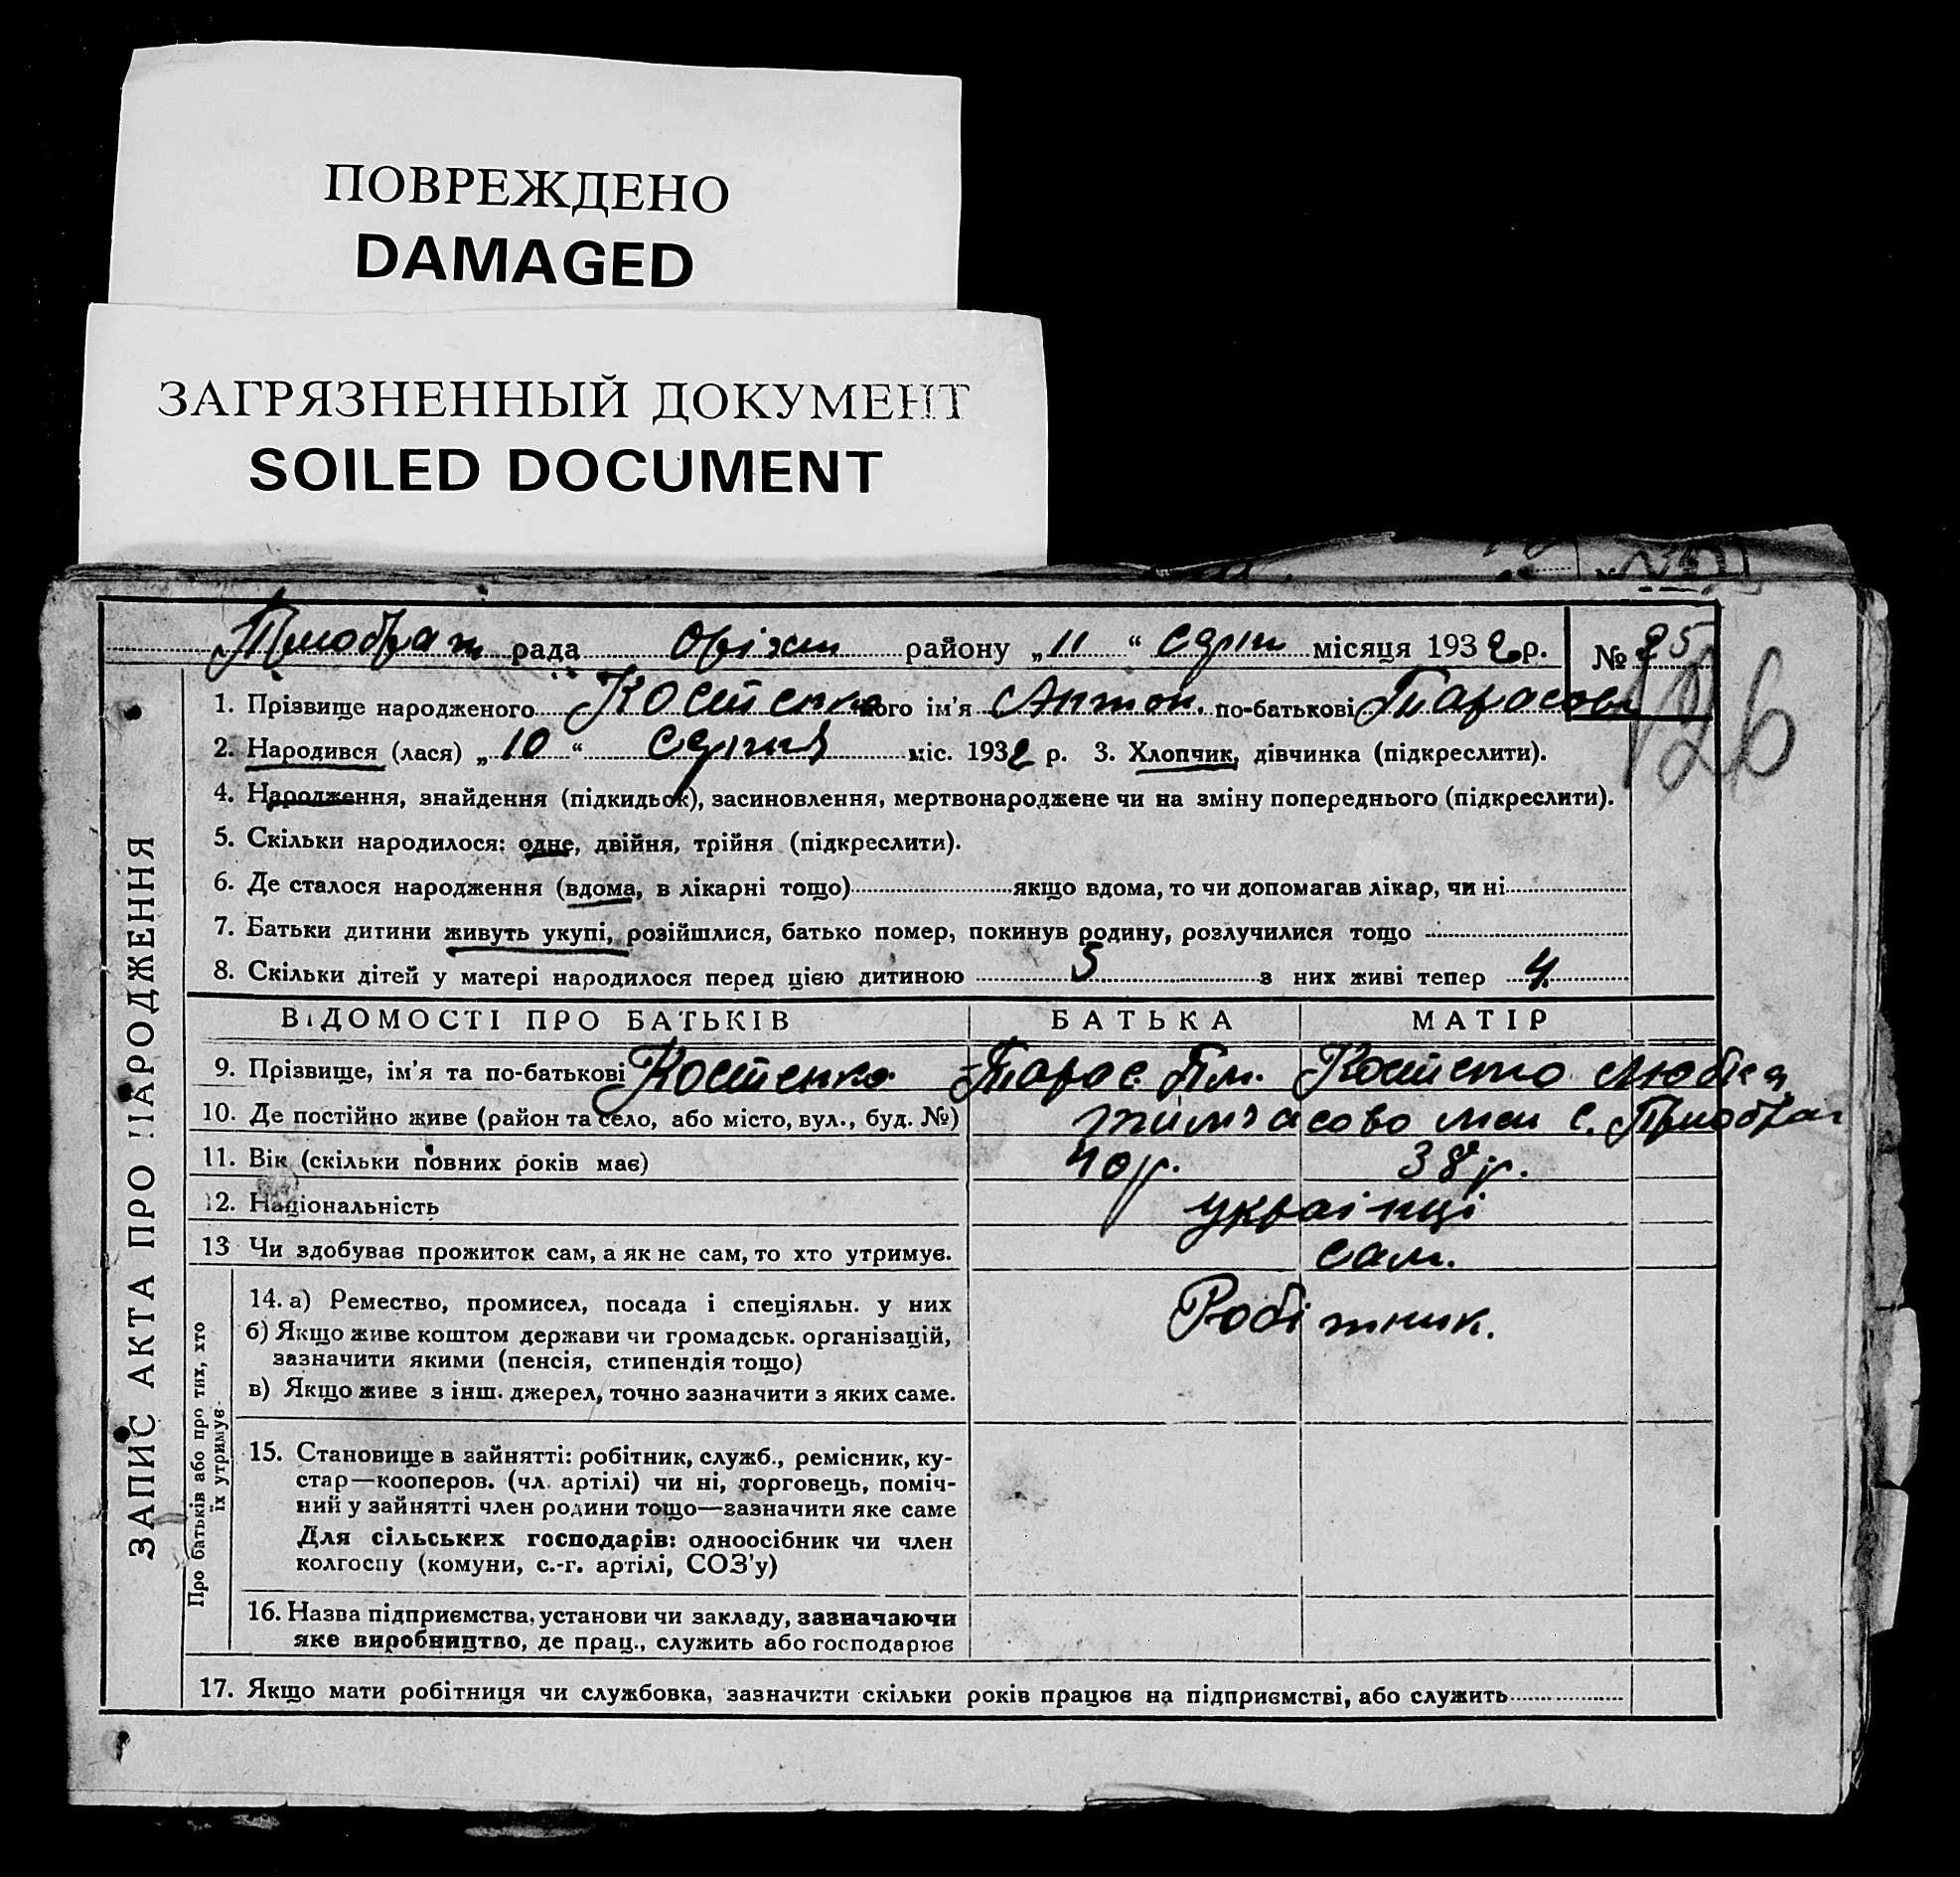 ПОВРЕЖДЕНО
DAMAGED
ЗАГРЯЗНЕННЫЙ ДОКУМЕНТ
SOILED DOCUMENT
рада Оріхів району „11“ серпн місяця 1932 р. № 25
126
1. Прізвище народженого Костенко його ім'я Антон. по-батькові Тарасов
2. Народився (лася) „10“ серпня міс. 1932 р. 3. Хлопчик, дівчинка (підкреслити).
4. Народження, знайдення (підкидьок), засиновлення, мертвонароджене чи на зміну попереднього (підкреслити).
5. Скільки народилося: одне, двійня, трійня (підкреслити).
6. Де сталося народження (вдома, в лікарні тощо) якщо вдома, то чи допомагав лікар, чи ні
7. Батьки дитини живуть укупі, розійшлися, батько помер, покинув родину, розлучилися тощо
8. Скільки дітей у матері народилося перед цією дитиною 5 з них живі тепер 4
ЗАПИС АКТА ПРО НАРОДЖЕННЯ
ВІДОМОСТІ ПРО БАТЬКІВ БАТЬКА МАТІР
9. Прізвище, ім'я та по-батькові Костенко Тарас Костенко Любка
10. Де постійно живе (район та село, або місто, вул., буд. №) тимчасово с.
11. Вік (скільки повних років має) 40 р. 38 р.
12. Національність українці
13 Чи здобуває прожиток сам, а як не сам, то хто утримує. сам.
Про батьків або про тих, хто їх утримує.
14. а) Ремество, промисел, посада і спеціяльн. у них Робітник.
б) Якщо живе коштом держави чи громадськ. організацій,
зазначити якими (пенсія, стипендія тощо)
в) Якщо живе з інш. джерел, точно зазначити з яких саме.
15. Становище в зайнятті: робітник, служб., ремісник, ку-
стар—кооперов. (чл. артілі) чи ні, торговець, поміч-
ний у зайнятті член родини тощо—зазначити яке саме
Для сільських господарів: одноосібник чи член
колгоспу (комуни, с.-г. артілі, СОЗ'у)
16. Назва підприємства, установи чи закладу, зазначаючи
яке виробництво, де прац., служить або господарює
17. Якщо мати робітниця чи службовка, зазначити скільки років працює на підприємстві, або служить